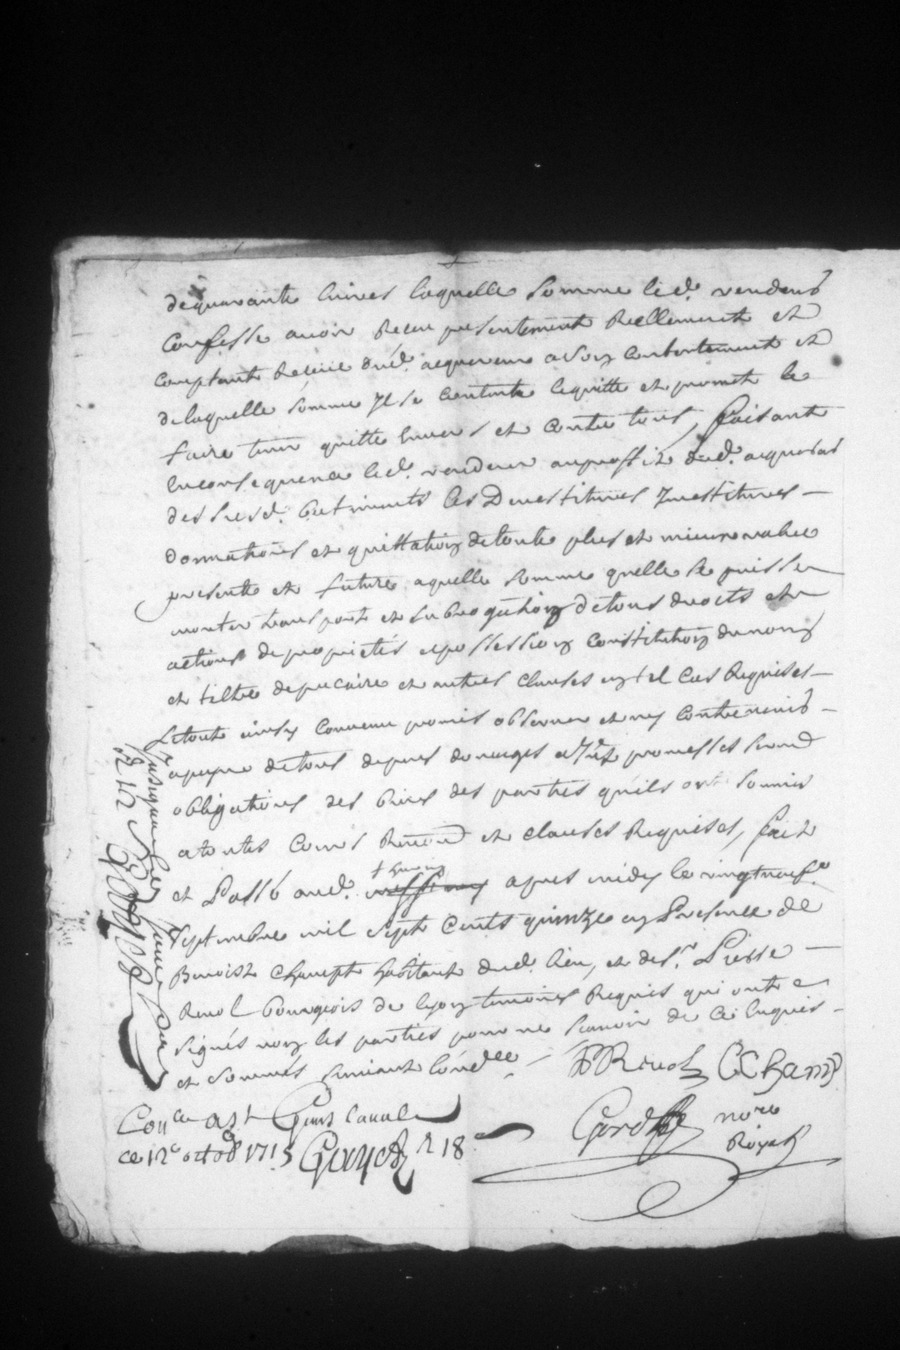 de quarante livres laquelle somme led. vendeur
confesse avoir receu presentement reellement et
comptant dud. acquereur a son contentement et
de laquelle somme Il se contente le quitte et promet le
faire tenir quitte envers et contre tous, faisant
en consequence led. vendeur au proffit dud. acquereur
des susd. batiments les Devestitures Investitures
donnations et quittation de toute plus et mieux value
presente et future a quelle somme quelle se puisse
monter transport et subrogation de tous droits et
actions de proprietés et possession constitution du nom
et tiltre de precaire et autres clauses en tel cas Requises
Le tout ainsy convenu promis observer et ny contrevenir
a peyne de tous depens domages promesses
obligations des biens des parties quils ont soumis
a toutes cours et clauses Requises, fait
et Passé aud. apres midy le vingtneufe
Septembre mil sept cents quinze en presence de
Benoist Champt habitant dud. lieu, et de sr. Pierre
Renol bourgeois de Lyon temoins Requis qui ont
signés non les parties pour ne scavoir de ce Enquis
et sommés suivant
PRenol CChamp
Con.le a St Genis Laval
ce 12e octob 1715 Gayot R 18 s
nore
Royal